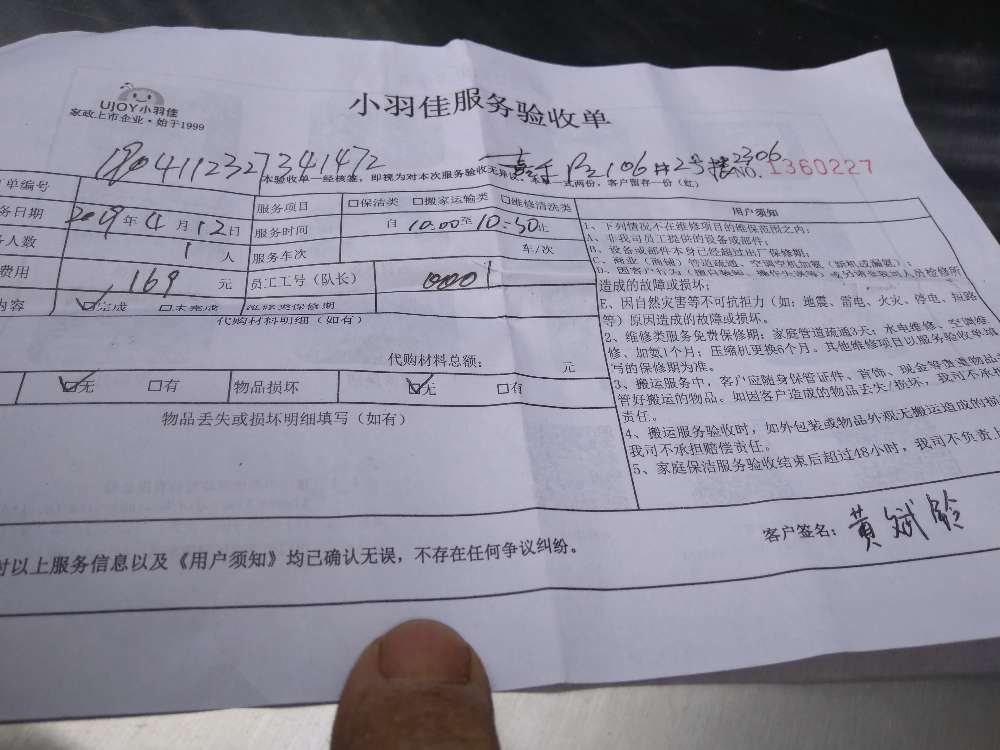 UJOY小羽佳
家政上市企业·始于1999
小羽佳服务验收单
1904112327241472
106#2号楼2306
本验收单一经核签，即视为对本次服务验收无异议。本单一式两份，客户留存一份（红）
NO.1360227
单编号
服务项目 □保洁类 □搬家运输类 □维修清洗类
务日期 2019年4月12日
服务时间 自10:00至10:50止
人数 1人
服务车次 车/次
费用 169元
员工工号（队长） 100001
内容 ☑完成 □未完成 维修类保修期
代购材料明细（如有）
代购材料总额： 元
☑无 □有 物品损坏 ☑无 □有
物品丢失或损坏明细填写（如有）
用户须知
1、下列情况不在维修项目的维保范围之内：
A、非我司员工提供的设备或部件；
B、设备或部件本身已经超过出厂保修期；
C、商业（商铺）管道疏通、空调空机加氨（拆机或漏氨）；
造成的故障或损坏；
E、因自然灾害等不可抗拒力（如：地震、雷电、火灾、停电、短路
等）原因造成的故障或损坏。
2、维修类服务免费保修期：家庭管道疏通3天；水电维修、空调维
修、加氨1个月；压缩机更换6个月。其他维修项目以服务验收单填
写的保修期为准。
3、搬运服务中，客户应随身保管证件、首饰、现金等贵重物品
管好搬运的物品。如因客户造成的物品丢失/损坏，我司不承担
责任。
4、搬运服务验收时，如外包装或物品外观无搬运造成的损
我司不承担赔偿责任。
5、家庭保洁服务验收结束后超过48小时，我司不负责上
对以上服务信息以及《用户须知》均已确认无误，不存在任何争议纠纷。
客户签名：黄斌